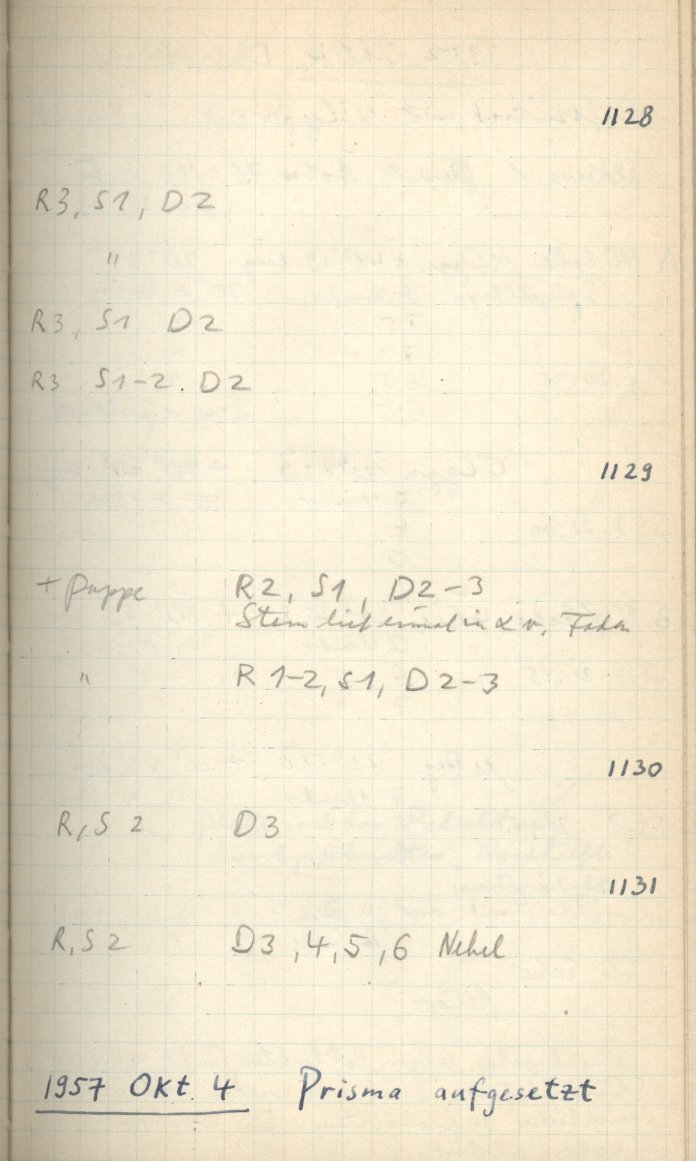 1128
R3, S1, D2
"
R3, S1 D2
R3 S1-2. D2
1129
+ Pappe R2, S1, D2-3
Stern lief einmal in α v. Faden
" R 1-2, S1, D2-3
1130
R, S 2 D3
1131
R, S 2 D3, 4, 5, 6 Nebel
1957 Okt. 4 Prisma aufgesetzt